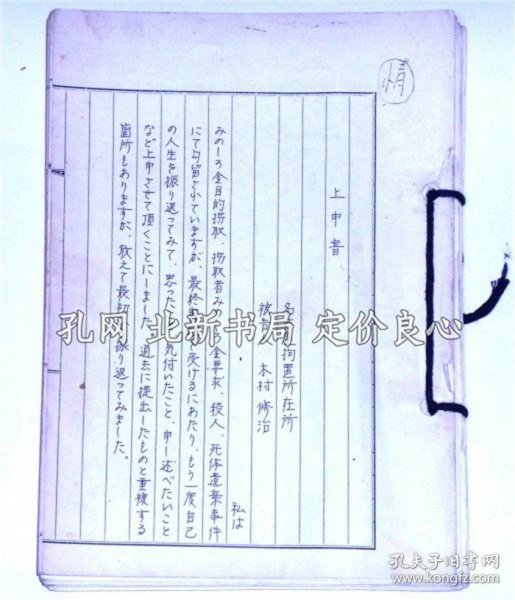 情
上申書
名 拘置所在所
被 木村修治
私は
みのしろ金目的拐取、拐取者み 金要求、殺人、死体遺棄事件
にて勾留されていますが、最終 受けるにあたり、もう一度自己
の人生を振り返ってみて、思った 気付いたこと、申し述べたいこと
など上申させて頂くことにしました。過去に提出したものと重複する
箇所もありますが、敢えて最初 振り返ってみました。
孔网 北新书局 定价良心
孔夫子旧书网
www.kongfz.com